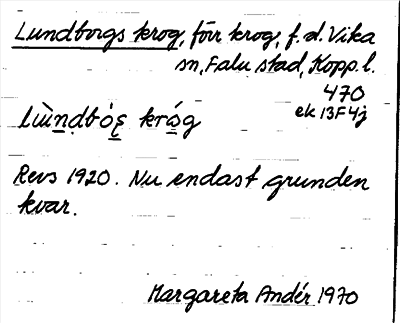 Lundborgs krog, förr krog, f.d. Vika
sn, Falu stad, Kopp.l.
470
ek 13F4j
krog
Revs 1920. Nu endast grunden
kvar.
Margareta Andér 1970